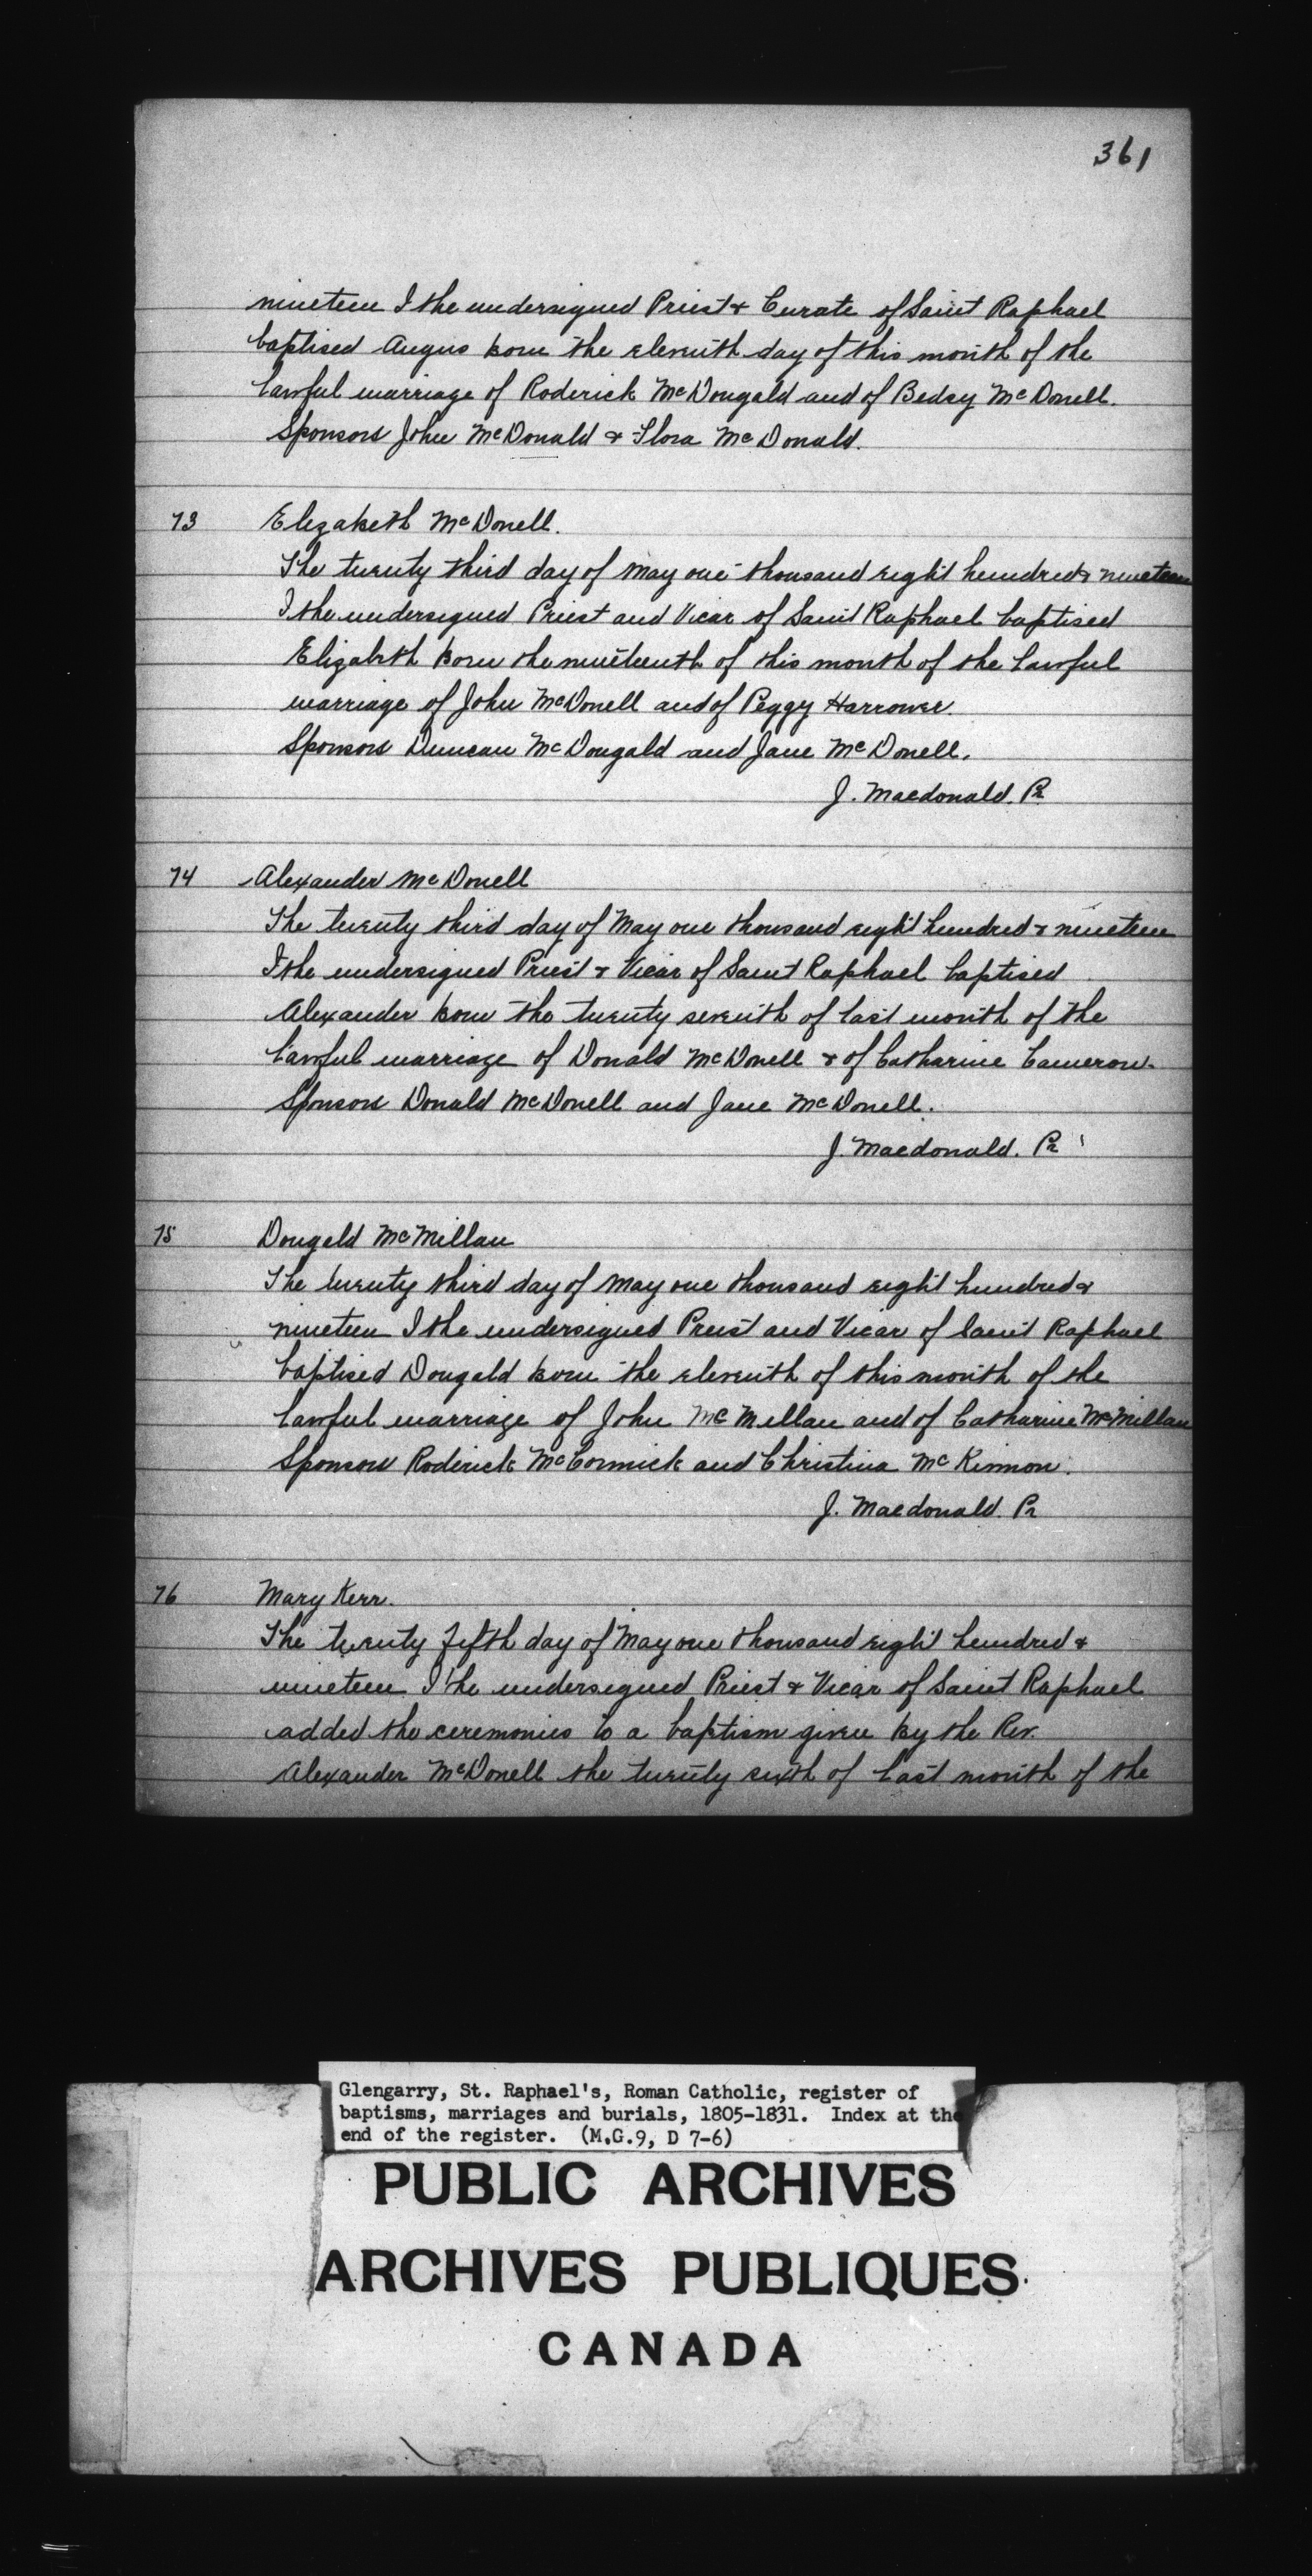 361
nineteen I the undersigned Priest & Curate of Saint Raphael
baptised Angus born the eleventh day of this month of the
lawful marriage of Roderick McDougald and of Bedsy McDonell.
Sponsors John McDonald & Flora McDonald.
73 Elizabeth McDonell.
The twenty third day of May one thousand eight hundred & nineteen
I the undersigned Priest and Vicar of Saint Raphael baptised
Elizabeth born the nineteenth of this month of the lawful
marriage of John McDonell and of Peggy Harrower.
Sponsors Duncan McDougald and Jane McDonell.
J. Macdonald. Pr
74 Alexander McDonell
The twenty third day of May one thousand eight hundred & nineteen
I the undersigned Priest & Vicar of Saint Raphael baptised
Alexander born the twenty seventh of last month of the
lawful marriage of Donald McDonell & of Catharine Cameron.
Sponsors Donald McDonell and Jane McDonell.
J. Macdonald. Pr
75 Dougald McMillan
The twenty third day of May one thousand eight hundred &
nineteen I the undersigned Preist and Vicar of Saint Raphael
baptised Dougald born the eleventh of this month of the
lawful marriage of John McMillan and of Catharine McMillan
Sponsors Roderick McCormick and Christina McKinnon.
J. Macdonald. Pr
76 Mary Kerr.
The twenty fifth day of May one thousand eight hundred &
nineteen I the undersigned Priest & Vicar of Saint Raphael
added the ceremonies to a baptism given by the Rev.
Alexander McDonell the twenty sixth of last month of the
Glengarry, St. Raphael's, Roman Catholic, register of
baptisms, marriages and burials, 1805-1831. Index at the
end of the register. (M.G.9, D 7-6)
PUBLIC ARCHIVES
ARCHIVES PUBLIQUES
CANADA